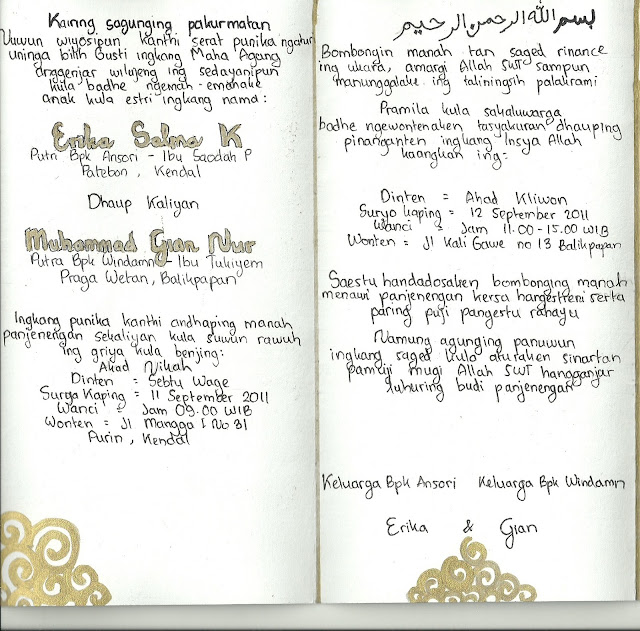 Kaining sagunging pakurmatan
Nuwun wiyosipun kanthi serat punika ngatur
uninga bilih Gusti ingkang Maha Agung
angganjar wilujeng ing sedayanipun
kula badhe ngemah-emahake
anak kula estri ingkang nama:
Erika Salma K
Putri Bpk Ansori - Ibu Saodah P
Patebon, Kendal
Dhaup Kaliyan
Muhammad Gian Nur
Putra Bpk Windamn - Ibu Tukiyem
Praga Wetan, Balikpapan
Ingkang punika kanthi andhaping manah
panjenengan sekaliyan kula suwun rawuh
ing griya kula benjing:
Akad Nikah
Dinten = Sebtu Wage
Surya Kaping = 11 September 2011
Wanci = Jam 09.00 WIB
Wonten = Jl Mangga I No 31
Purin, Kendal
بسم الله الرحمن الرحيم
Bombongin manah tan saged rinance
ing ukara, amargi Allah SWT sampun
manunggalake ing taliningsih palakrami
Pramila kula sakaluwarga
badhe ngewontenaken tasyakuran dhauping
pinanganten ingkang Insya Allah
kaangkah ing:
Dinten = Ahad Kliwon
Suryo kaping = 12 September 2011
Wanci = Jam 11.00 - 15.00 WIB
Wonten = Jl Kali Gawe no 13 Balikpapan
Saestu handadosaken bombonging manah
menawi panjenengan kersa hargestreni serta
paring puji pangestu rahayu
Namung agunging panuwun
ingkang saged kulo aturaken sinartan
pamuji mugi Allah SWT hangganjar
luhuring budi panjenengan
Keluarga Bpk Ansori Keluarga Bpk Windamn
Erika & Gian